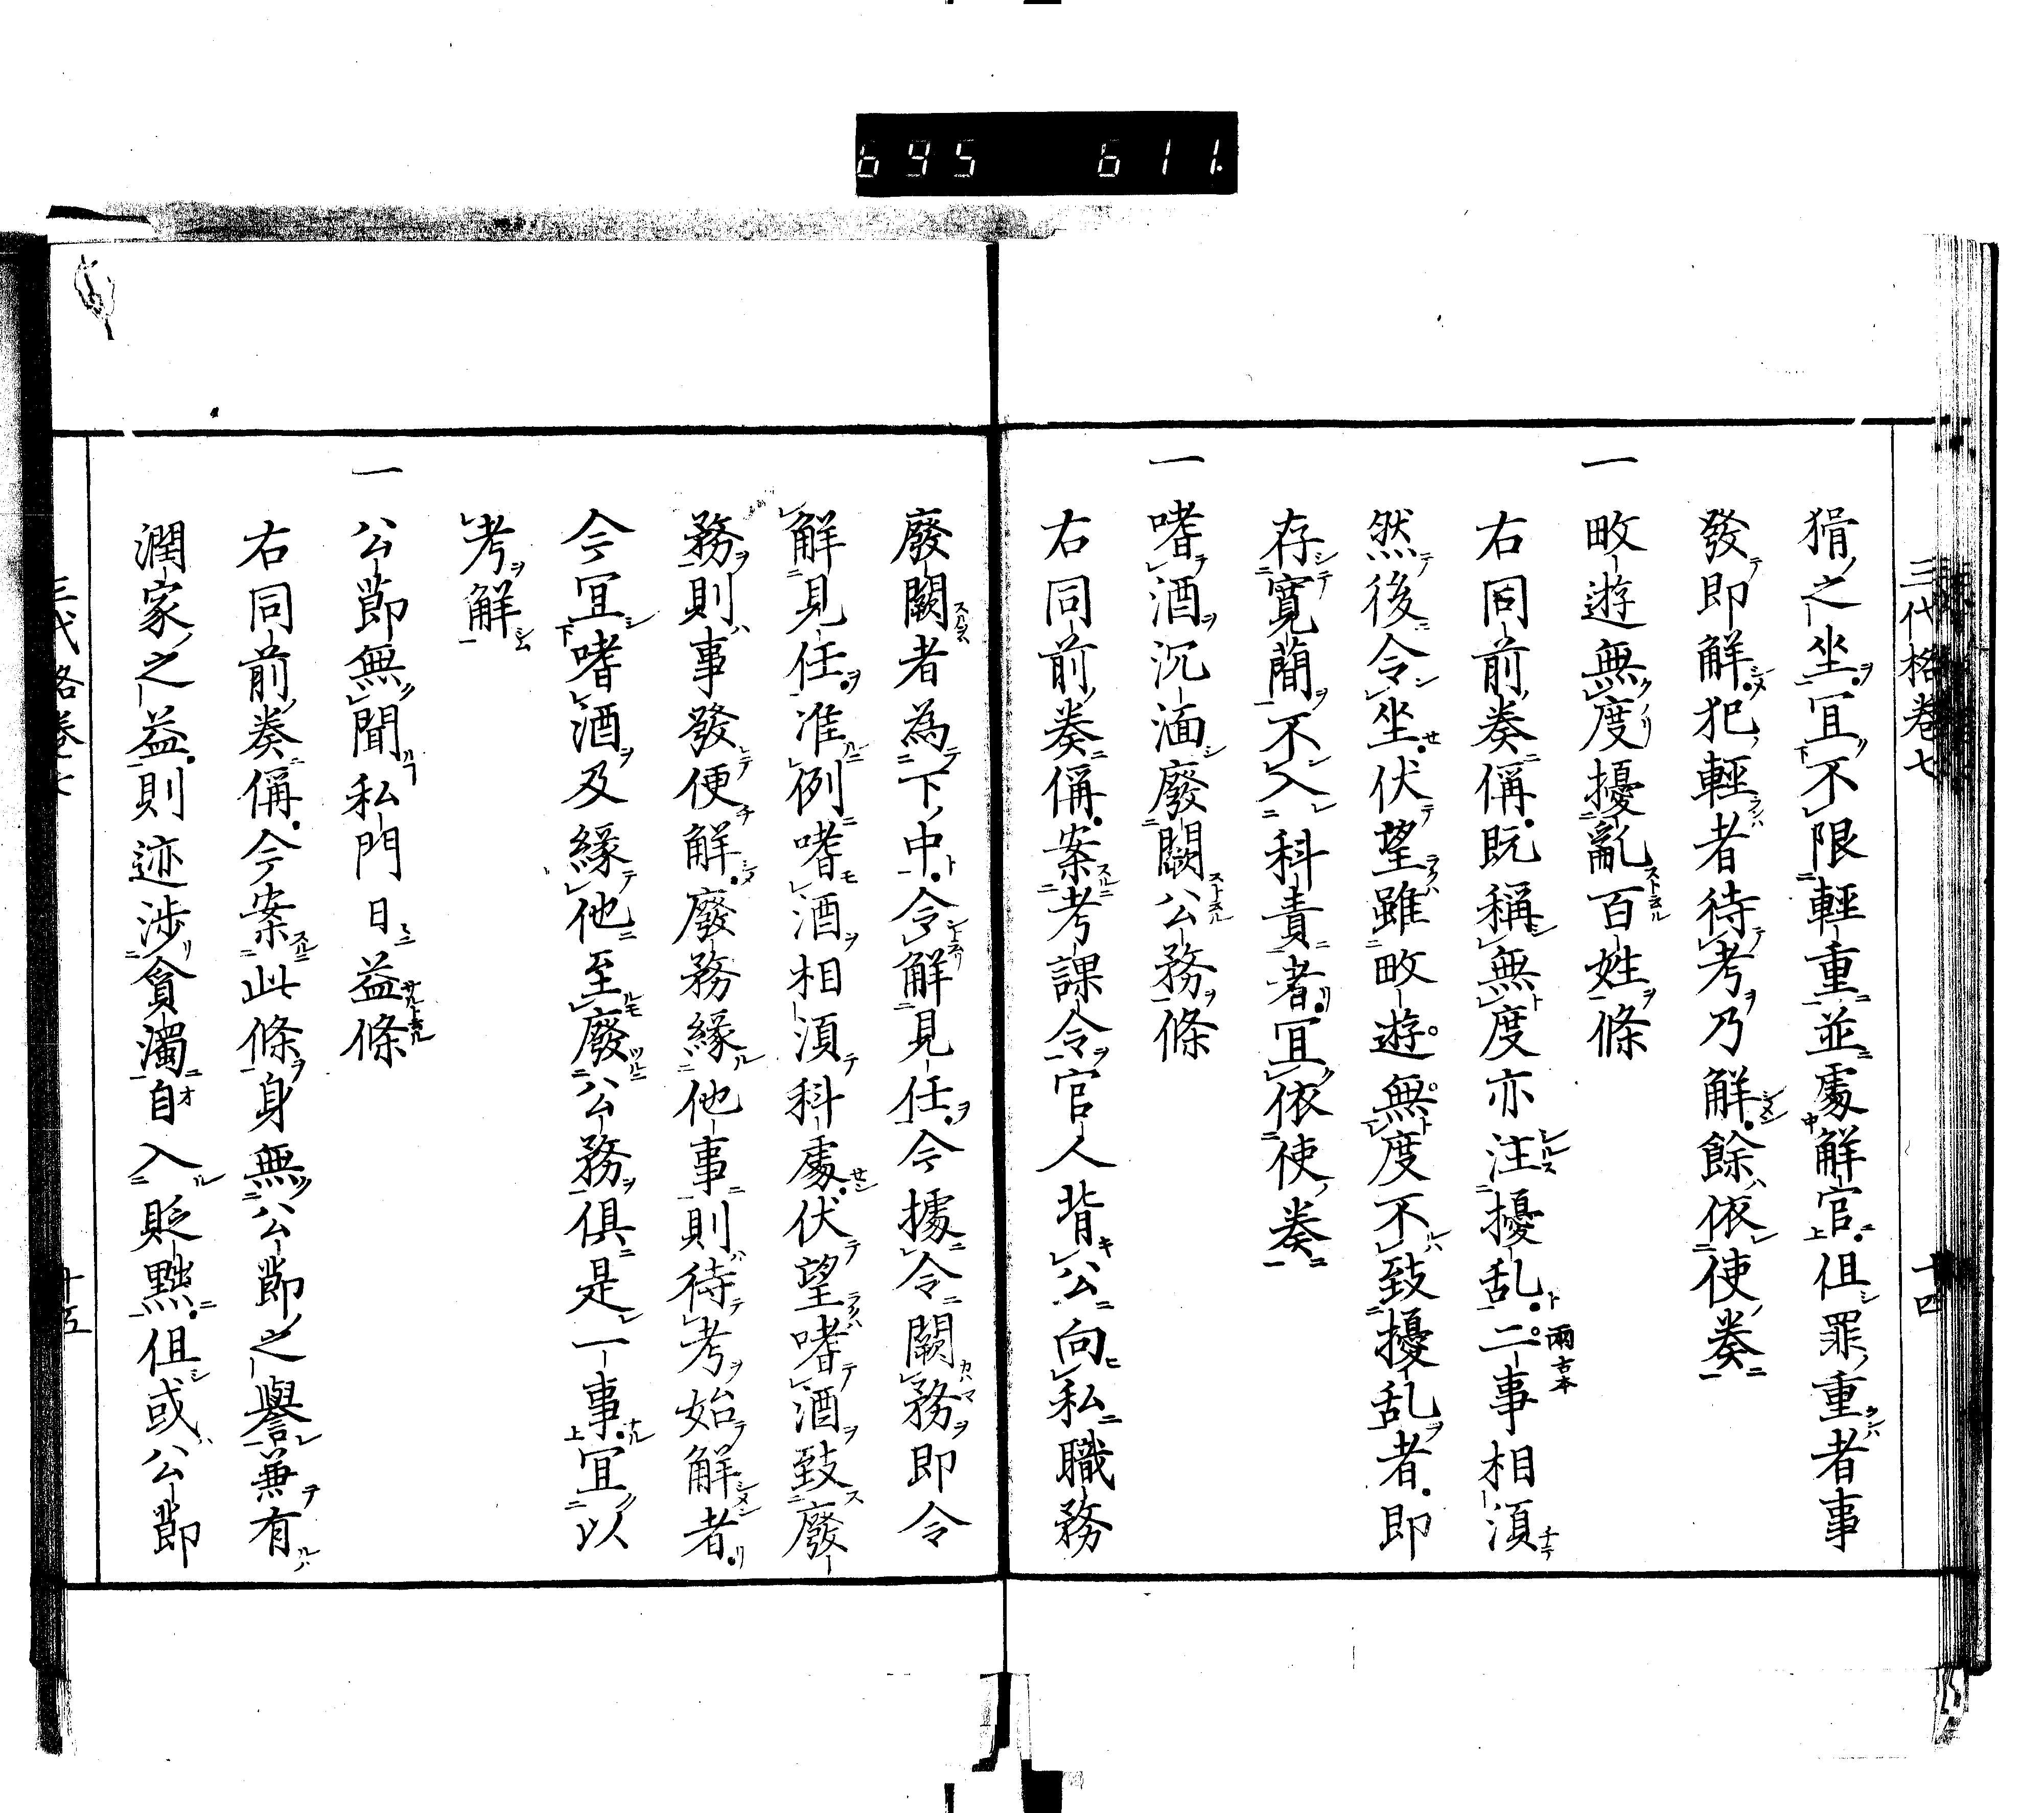 695 611.
三代格卷七 十四
狷之坐宜不限輕重並處解官但罪重者事
發即解犯輕者待考乃解餘依使奏
一畋遊無度擾亂百姓條
右同前奏偁既稱無度亦注擾乱二事相湏
兩古本
然後令坐伏望雖畋遊無度不致擾乱者即
存寛蕳不入科責者宜依使奏
一嗜酒沉湎廢闕公務條
右同前奏偁案考課令官人背公向私職務
廢闕者為下中令解見任今據令闕務即令
解見任准例嗜酒相湏科處伏望嗜酒致廢
務則事發便解廢務緣他事則待考始解者
今宜嗜酒及緣他至廢公務俱是一事宜以
考解
一公節無聞私門日益條
右同前奏偁今案此條身無公節之譽兼有
潤家之益則迹涉貪濁自入貶黜但或公節
三代格卷七 十五